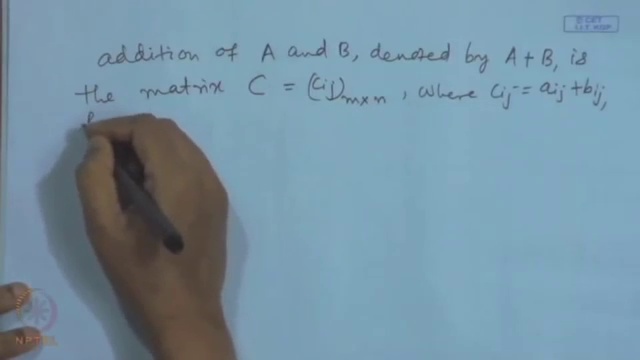 © CET
I.I.T. KGP
addition of A and B, denoted by A + B, is
the matrix C = (cij)m×n, where cij = aij + bij,
NPTEL